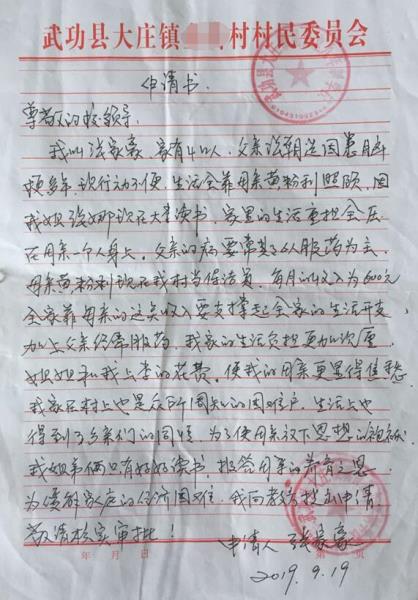 武功县大庄镇 村村民委员会
申请书
尊敬的校领导
我叫张家豪、家有4口人，父亲张朝选因患脑
梗多年，现行动不便，生活全靠母亲黄粉利照顾，因
我姐张娜现在大学读书，家里的生活重担全压
在母亲一个人身上。父亲的病要常年以服药为主，
母亲黄粉利现在我村当保洁员，每月的收入为600元
全家靠母亲的这点收入要支撑起全家的生活开支，
加上父亲经常服药，我家的生活负担更加沉重
姐姐和我上学的花费，使我的母亲更显得焦愁
我家在村上也是众所周知的困难户，生活上也
得到了乡亲们的同情，为了使母亲放下思想的包袱，
我姐弟俩只有好好读书，报答母亲的养育之恩
为缓解家庭的经济困难，我向学校提出申请
敬请核实审批！
申请人 张家豪
年 月 日 第 页
2019.9.19